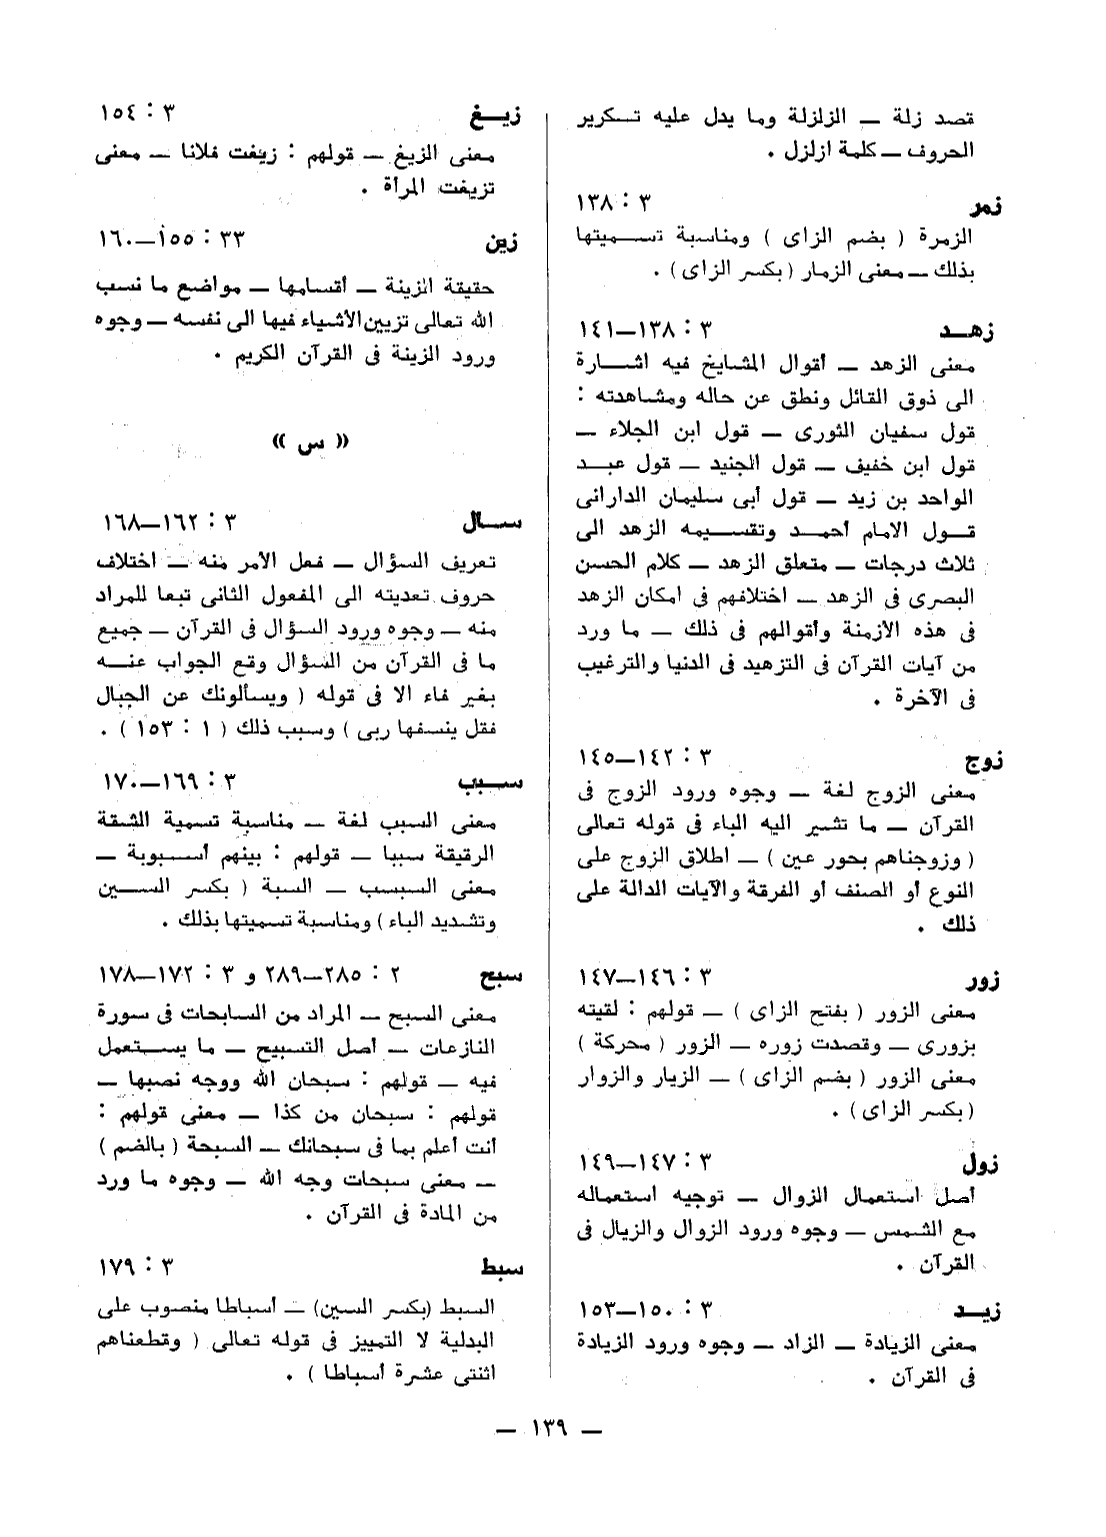 قصد زلة — الزلزلة وما يدل عليه تكرير
الحروف — كلمة ازلزل .
زمر ٣ : ١٣٨
الزمرة ( بضم الزاى ) ومناسبة تسميتها
بذلك — معنى الزمار ( بكسر الزاى ) .
زهد ٣ : ١٣٨—١٤١
معنى الزهد — أقوال المشايخ فيه اشارة
الى ذوق القائل ونطق عن حاله ومشاهدته :
قول سفيان الثورى — قول ابن الجلاء —
قول ابن خفيف — قول الجنيد — قول عبد
الواحد بن زيد — قول أبى سليمان الدارانى
قول الامام أحمد وتقسيمه الزهد الى
ثلاث درجات — متعلق الزهد — كلام الحسن
البصرى فى الزهد — اختلافهم فى امكان الزهد
فى هذه الأزمنة وأقوالهم فى ذلك — ما ورد
من آيات القرآن فى التزهيد فى الدنيا والترغيب
فى الآخرة .
زوج ٣ : ١٤٢—١٤٥
معنى الزوج لغة — وجوه ورود الزوج فى
القرآن — ما تشير اليه الباء فى قوله تعالى
( وزوجناهم بحور عين ) — اطلاق الزوج على
النوع أو الصنف أو الفرقة والآيات الدالة على
ذلك .
زور ٣ : ١٤٦—١٤٧
معنى الزور ( بفتح الزاى ) — قولهم : لقيته
بزورى — وقصدت زوره — الزور ( محركة )
معنى الزور ( بضم الزاى ) — الزيار والزوار
( بكسر الزاى ) .
زول ٣ : ١٤٧—١٤٩
أصل استعمال الزوال — توجيه استعماله
مع الشمس — وجوه ورود الزوال والزيال فى
القرآن .
زيد ٣ : ١٥٠—١٥٣
معنى الزيادة — الزاد — وجوه ورود الزيادة
فى القرآن .
زيغ ٣ : ١٥٤
معنى الزيغ — قولهم : زيغت فلانا — معنى
تزيغت المرأة .
زين ٣٣ : ١٥٥—١٦٠
حقيقة الزينة — أقسامها — مواضع ما نسب
الله تعالى تزيين الأشياء فيها الى نفسه — وجوه
ورود الزينة فى القرآن الكريم .
« س »
سال ٣ : ١٦٢—١٦٨
تعريف السؤال — فعل الأمر منه — اختلاف
حروف تعديته الى المفعول الثانى تبعا للمراد
منه — وجوه ورود السؤال فى القرآن — جميع
ما فى القرآن من السؤال وقع الجواب عنه
بغير فاء الا فى قوله ( ويسألونك عن الجبال
فقل ينسفها ربى ) وسبب ذلك ( ١ : ١٥٣ ) .
سبب ٣ : ١٦٩—١٧٠
معنى السبب لغة — مناسبة تسمية الشقة
الرقيقة سببا — قولهم : بينهم أسبوبة —
معنى السبسب — السبة ( بكسر السين
وتشديد الباء ) ومناسبة تسميتها بذلك .
سبح ٢ : ٢٨٥—٢٨٩ و ٣ : ١٧٢—١٧٨
معنى السبح — المراد من السابحات فى سورة
النازعات — أصل التسبيح — ما يستعمل
فيه — قولهم : سبحان الله ووجه نصبها —
قولهم : سبحان من كذا — معنى قولهم :
أنت أعلم بما فى سبحانك — السبحة ( بالضم )
— معنى سبحات وجه الله — وجوه ما ورد
من المادة فى القرآن .
سبط ٣ : ١٧٩
السبط (بكسر السين) — أسباطا منصوب على
البدلية لا التمييز فى قوله تعالى ( وقطعناهم
اثنتى عشرة أسباطا ) .
— ١٣٩ —